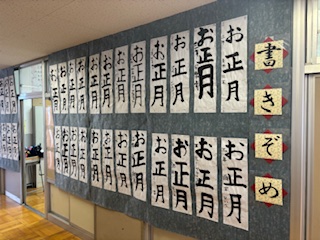 書きぞめ
お正月
お正月
お正月
お正月
お正月
お正月
お正月
お正月
お正月
お正月
お正月
お正月
お正月
お正月
お正月
お正月
お正月
お正月
お正月
お正月